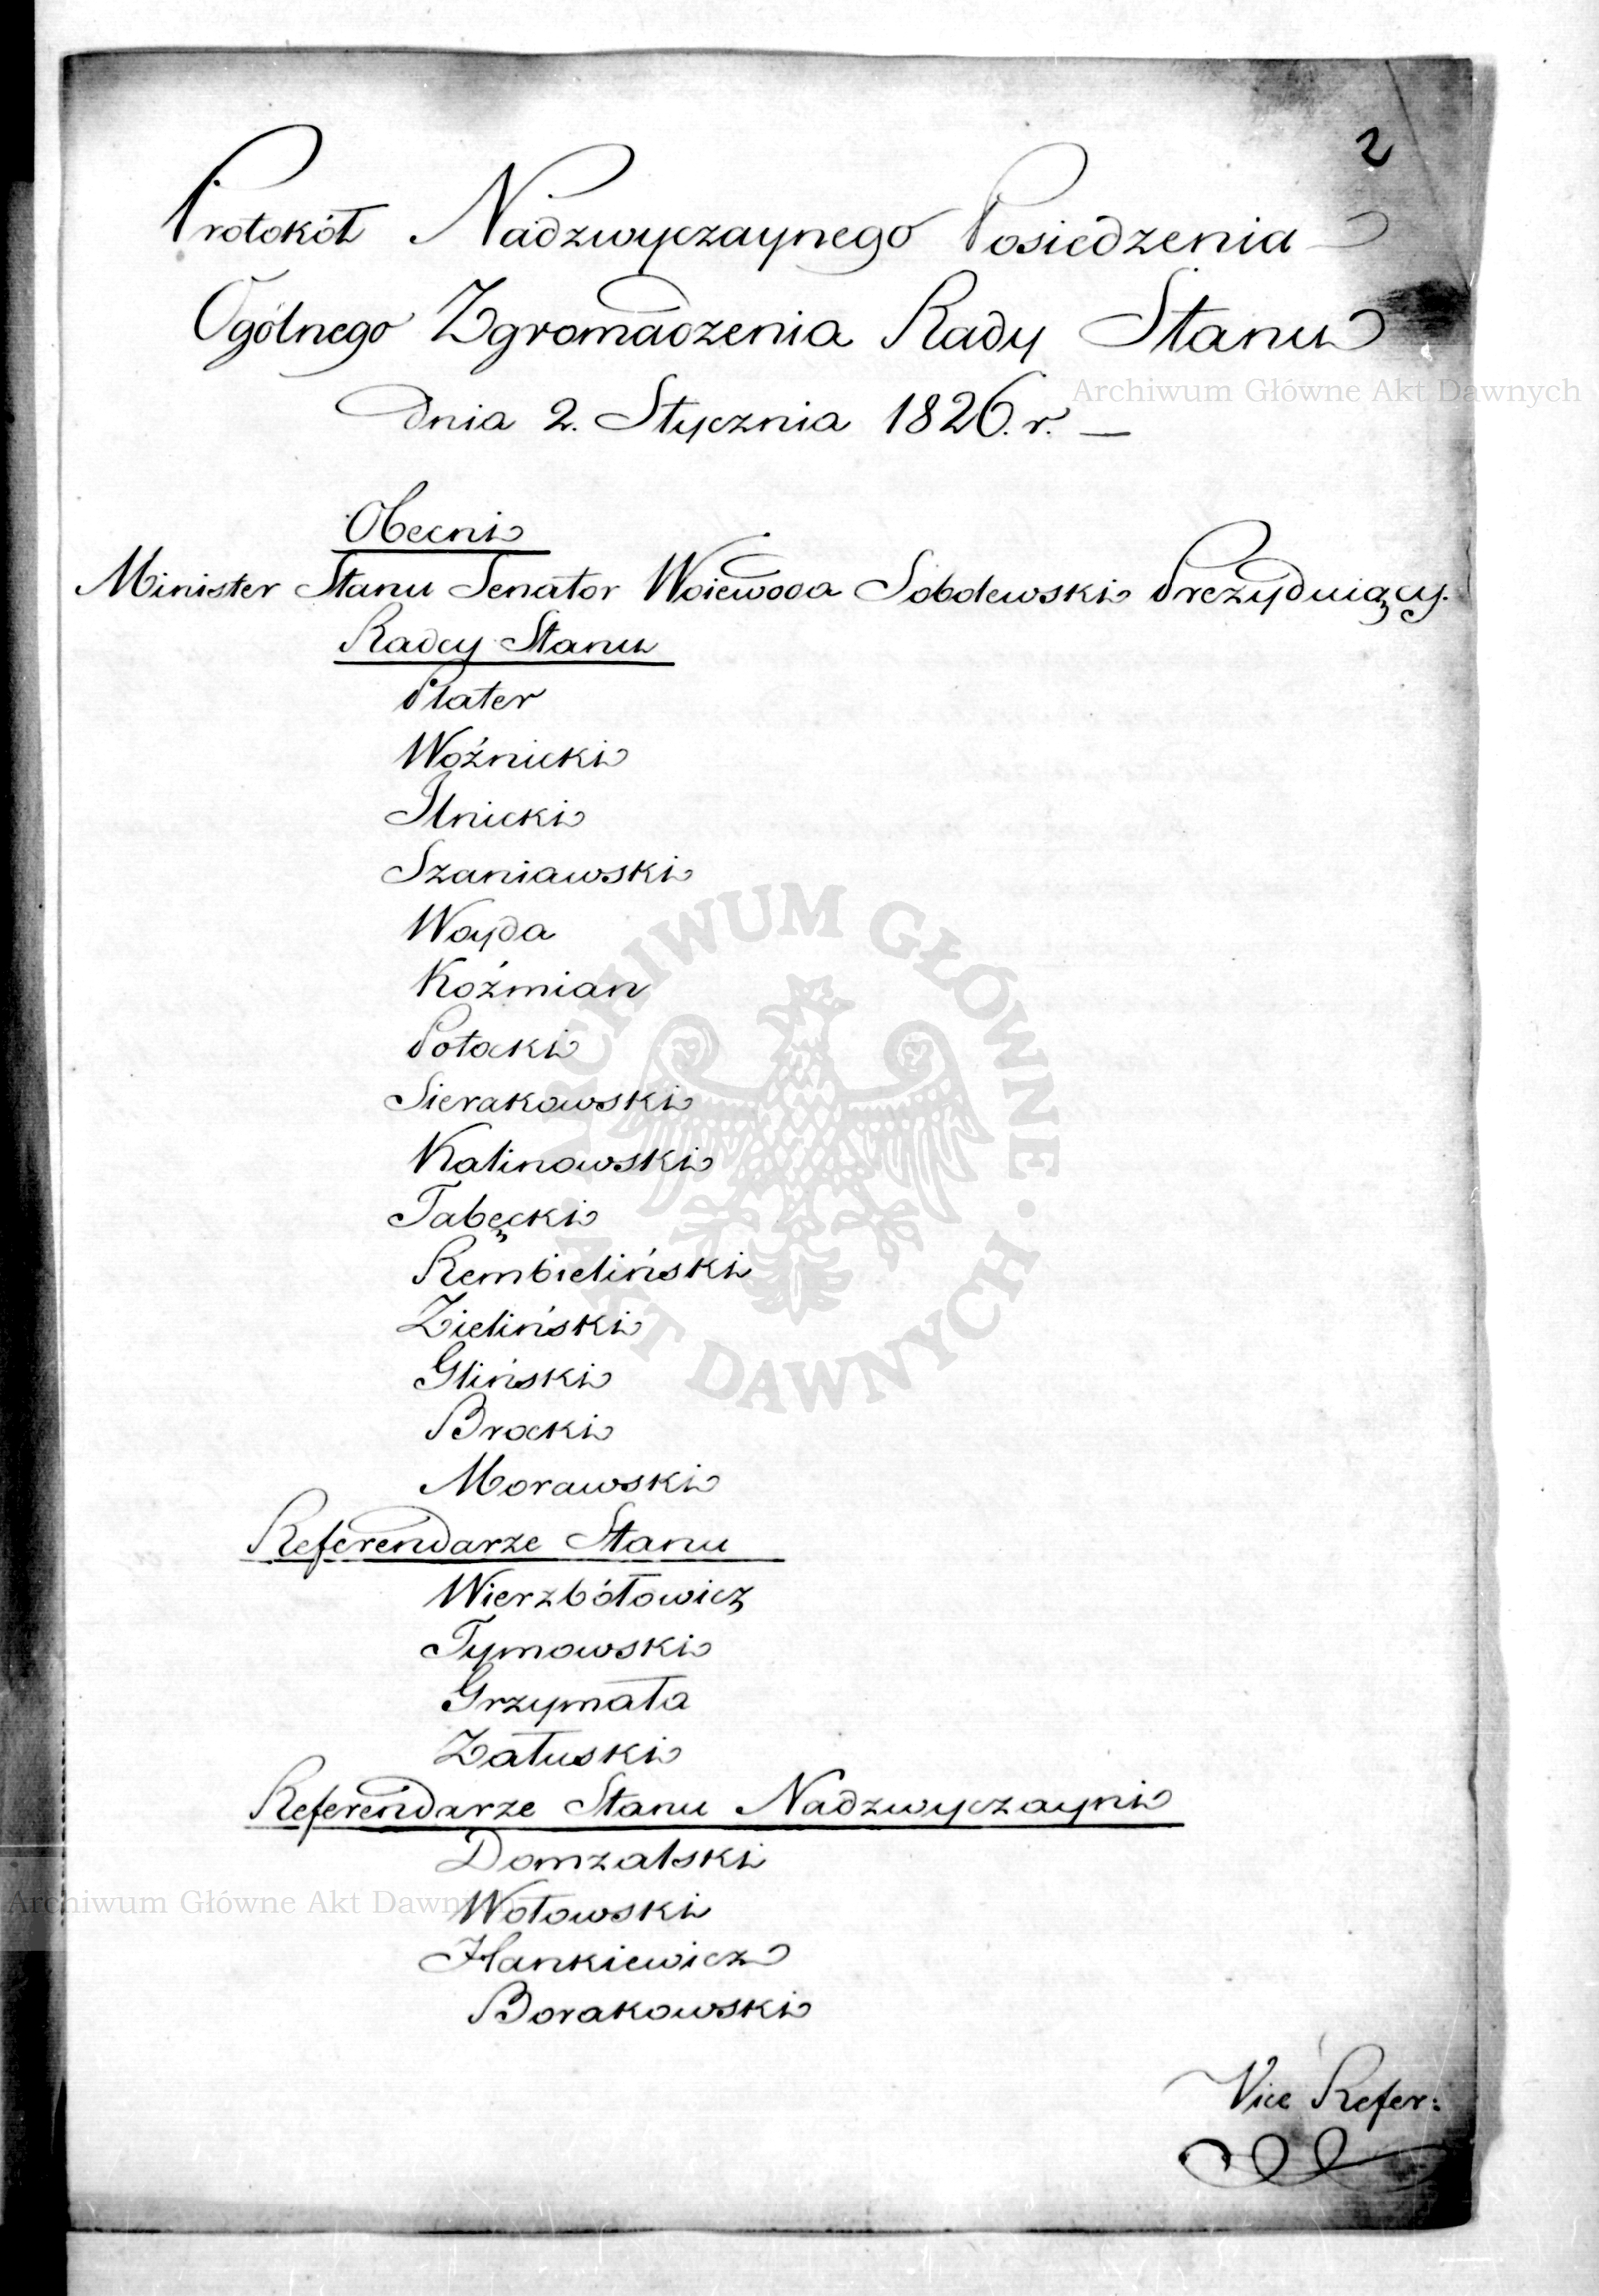 2
Protokół Nadzwyczaynego Posiedzenia
Ogólnego Zgromadzenia Rady Stanu
dnia 2. Stycznia 1826. r. —
Archiwum Główne Akt Dawnych
Obecni
Minister Stanu Senator Woiewoda Sobolewski Prezyduiący.
Radcy Stanu
Plater
Woźnicki
Ilnicki
Szaniawski
Woyda
Koźmian
Potocki
Sierakowski
Kalinowski
Tabęcki
Rembieliński
Zieliński
Gliński
Brocki
Morawski
ARCHIWUM GŁÓWNE · AKT DAWNYCH ·
Referendarze Stanu
Wierzbółowicz
Tymowski
Grzymała
Załuski
Referendarze Stanu Nadzwyczayni
Domzalski
Archiwum Główne Akt Dawnych
Wołowski
Hankiewicz
Borakowski
Vice Refer: